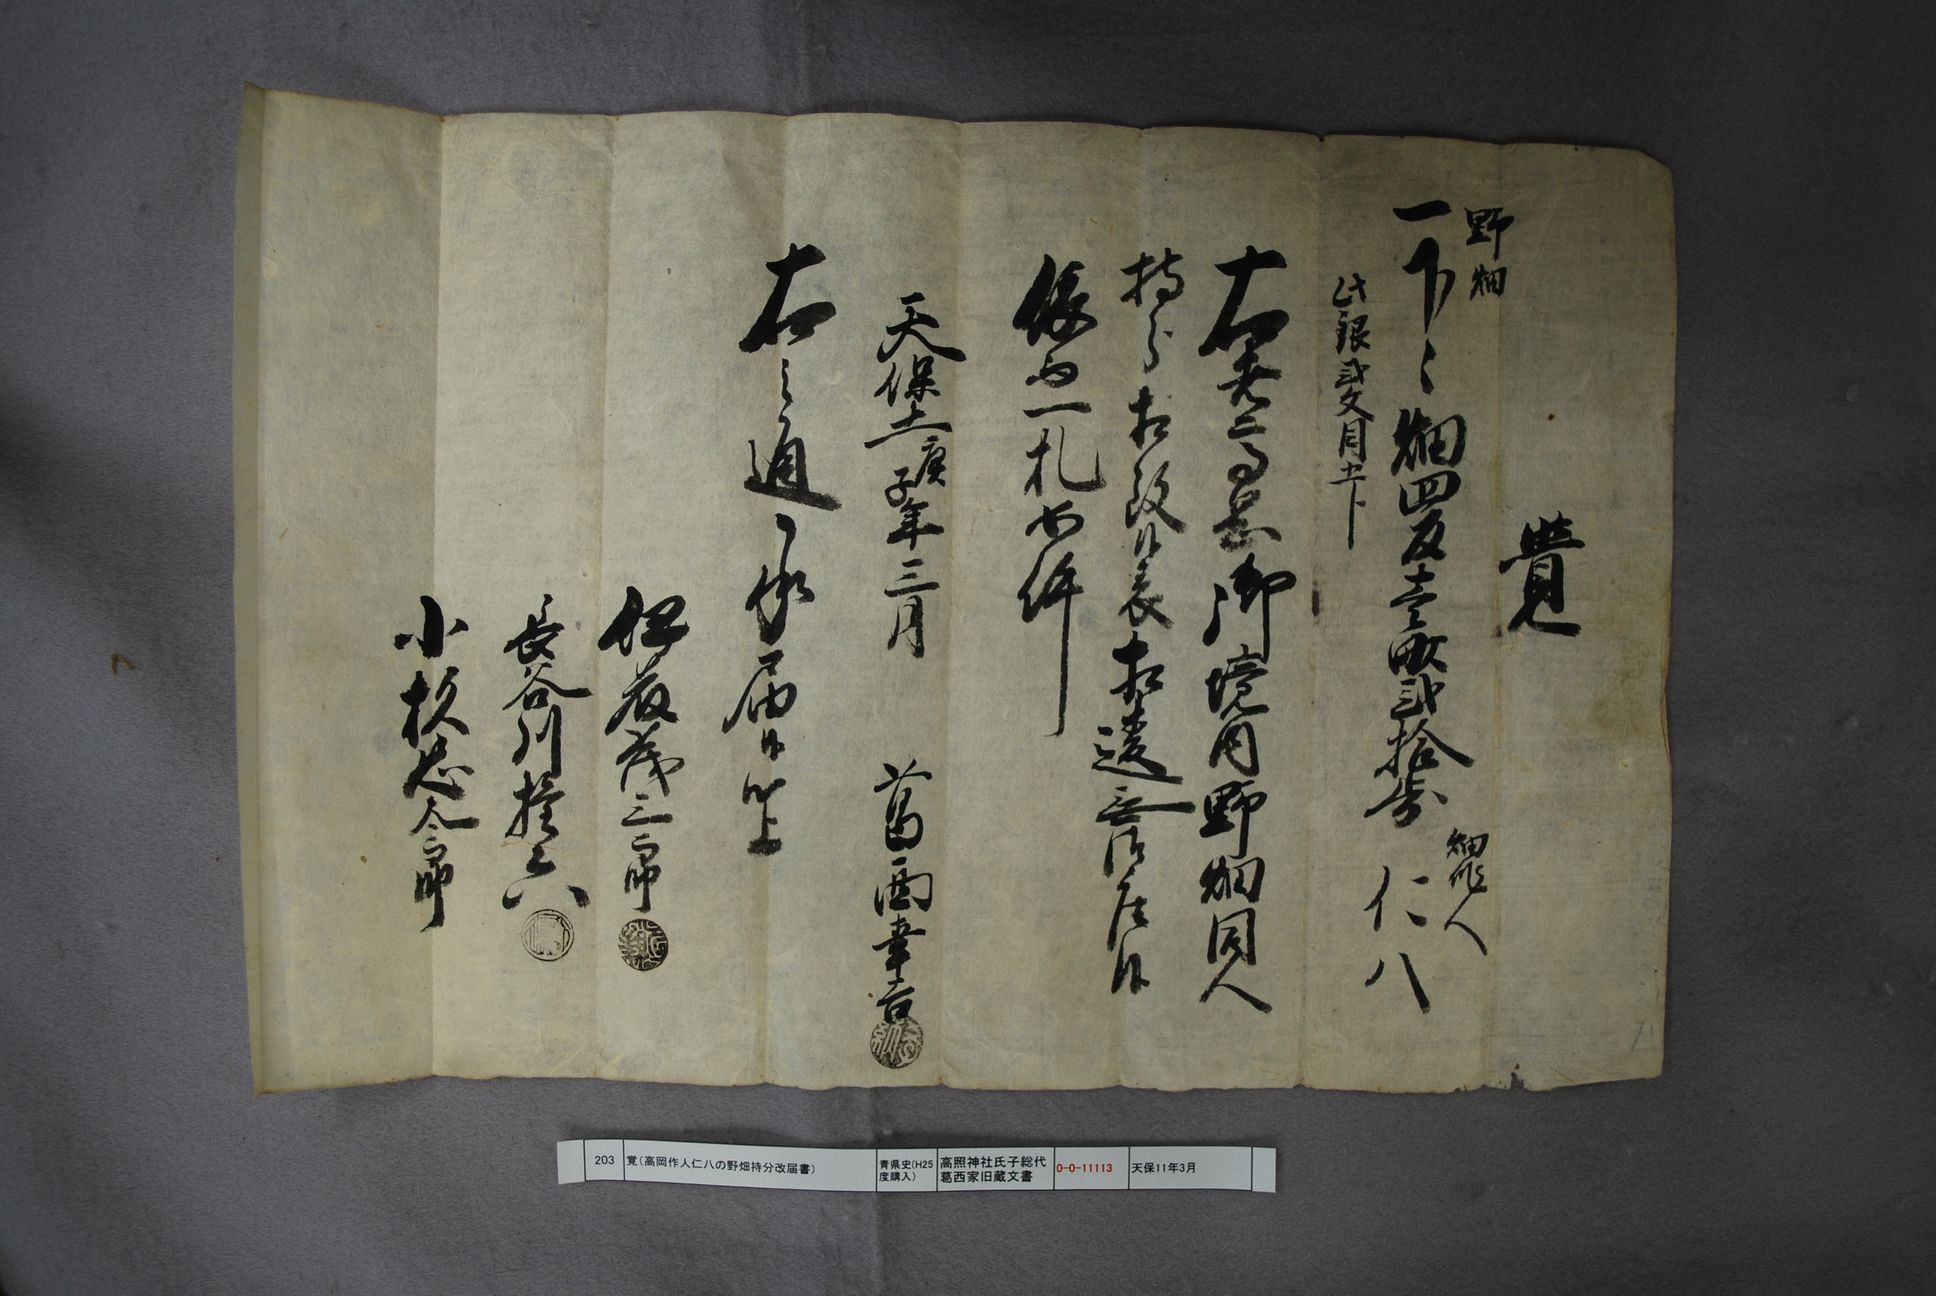 覚
野畑
一下々畑四反壱畝弐拾歩
畑作人
仁八
此銀弐文目
右者高岡御境内野畑同人
持分相改候処相違無御座候
依而一札如件
天保十一庚子年三月
葛西幸吉
右之通承届候以上
伊藤茂三郎
長谷川
小杉
203
覚(高岡作人仁八の野畑持分改届書)
青県史(H25
度購入)
高照神社氏子総代
葛西家旧蔵文書
0-0-11113
天保11年3月